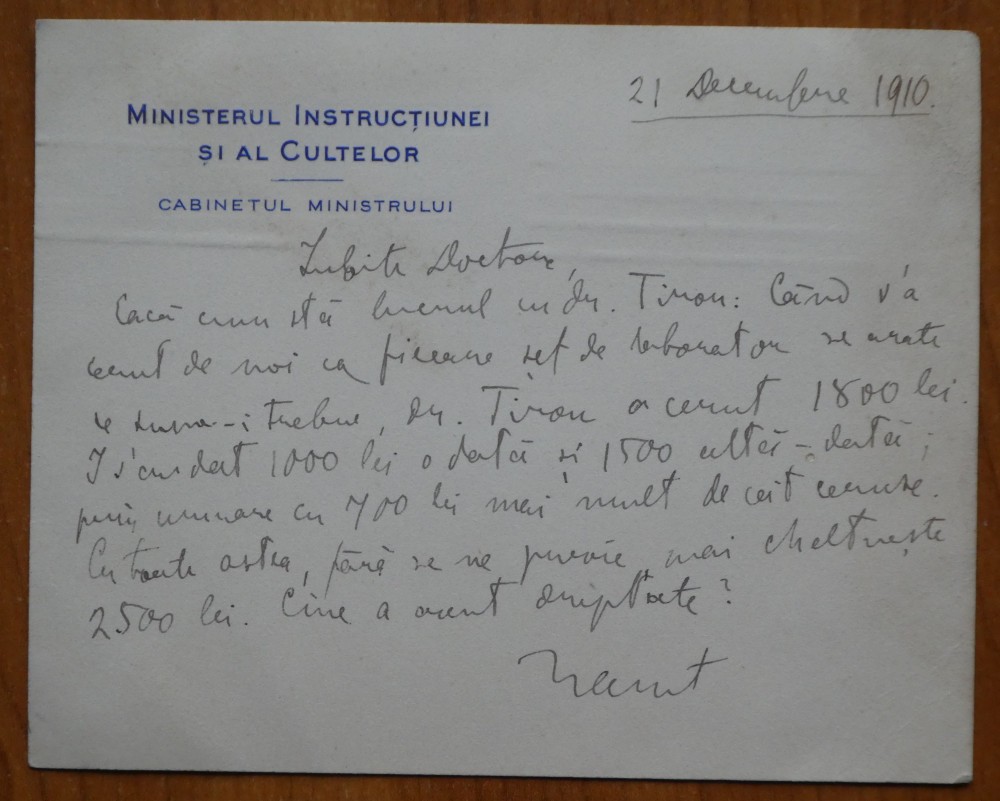 21 Decembre 1910.
MINISTERUL INSTRUCȚIUNEI
ȘI AL CULTELOR
CABINETUL MINISTRULUI
Iubite Doctore,
Iacă cum stă lucrul cu dr. Tiron: Când s'a
cerut de noi ca fiecare șef de laborator se arate
ce suma-i trebue, dr. Tiron a cerut 1800 lei.
I s'au dat 1000 lei odată și 1500 altă-dată;
prin urmare cu 700 lei mai mult de cât ceruse.
Cu toate astea, fără se ne previe, mai cheltuește
2500 lei. Cine a avut dreptate?
Haret